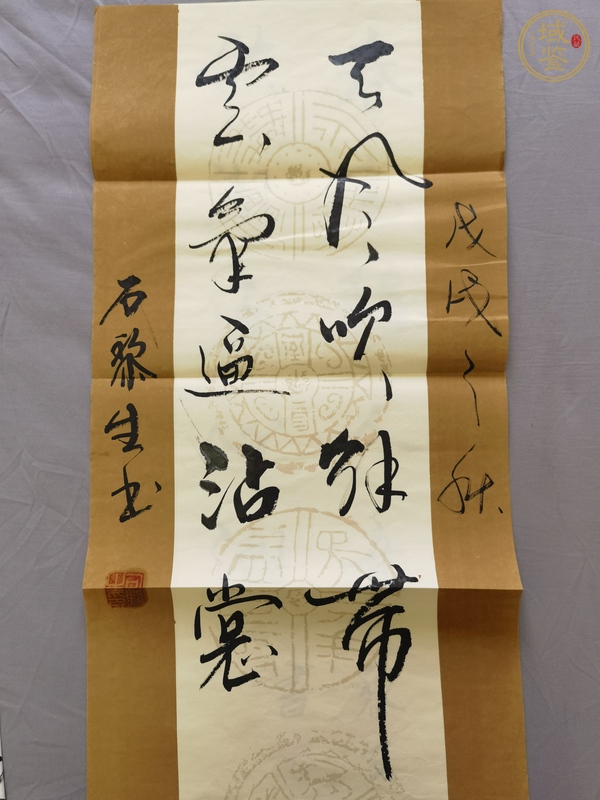 戊戌之秋
天风吹解带
云气逼沾裳
石黎生书
域鉴